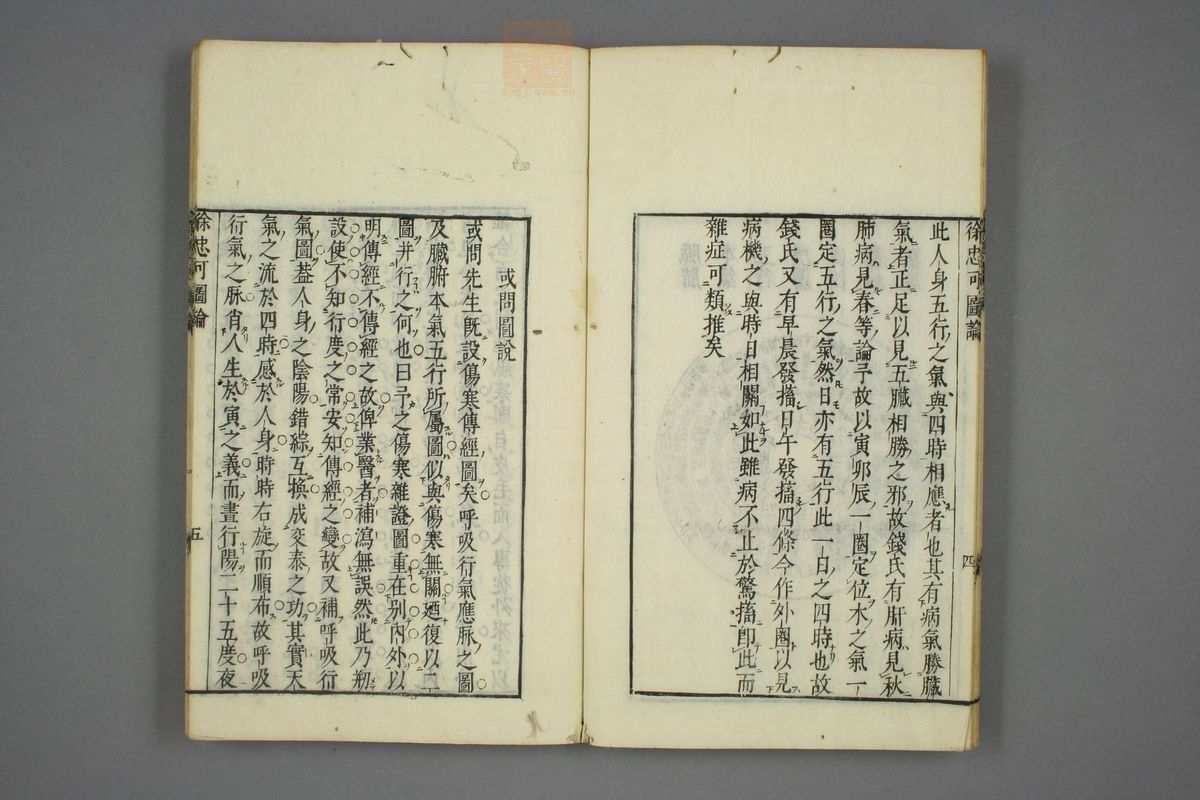 徐忠可圖論
四
此人身五行之氣與四時相應者也其有病氣勝臟
氣者正足以見五臟相勝之邪故錢氏有肝病見秋
肺病見春等論予故以寅卯辰一圈定位木之氣一
圈定五行之氣然日亦有五行此一日之四時也故
錢氏又有早晨發搐日午發搐四條今作外圈以見
病機之與時日相關如此雖病不止於驚搐即此而
雜症可類推矣
或問圖說
或問先生既設傷寒傳經圖矣呼吸行氣應脉之圖
及臟腑本氣五行所屬圖似與傷寒無關廼復以五
圖并行之何也曰予之傷寒雜證圖重在别内外以
明傳經不傳經之故俾業醫者補瀉無誤然此乃刱
設使不知行度之常安知傳經之變故又補呼吸行
氣圖葢人身之陰陽錯綜互換成交泰之功其實天
氣之流於四時感於人身時時右旋而順布故呼吸
行氣之脉肖人生於寅之義而晝行陽二十五度夜
徐忠可圖論
五